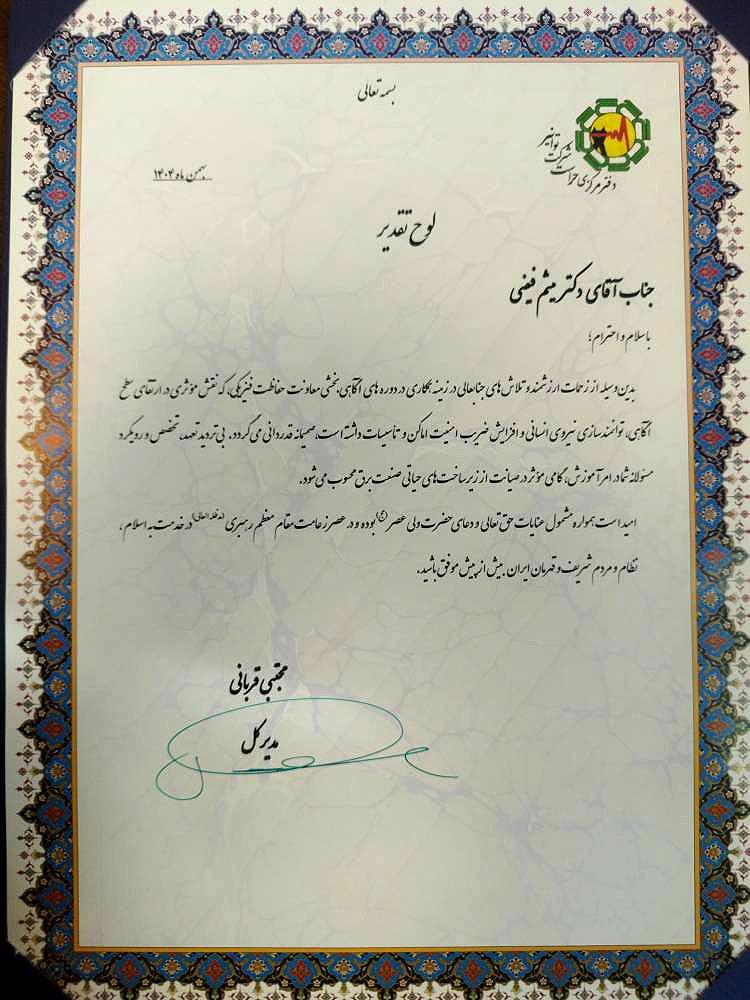 بسمه تعالی
شرکت توانیر
دفتر مرکزی حراست
بهمن ماه ۱۴۰۴
لوح تقدیر
جناب آقای دکتر میثم فیضی
باسلام و احترام؛
بدین وسیله از زحمات ارزشمند و تلاش های جنابعالی در زمینه همکاری در دوره های آگاهی بخشی معاونت حفاظت فیزیکی، که نقش مؤثری در ارتقای سطح
آگاهی، توانمندسازی نیروی انسانی و افزایش ضریب امنیت اماکن و تأسیسات داشته است، صمیمانه قدردانی می گردد. بی تردید تعهد، تخصص و رویکرد
مسئولانه شما در امر آموزش، گامی مؤثر در صیانت از زیرساخت های حیاتی صنعت برق محسوب می شود.
امید است همواره مشمول عنایات حق تعالی و دعای حضرت ولی عصر (عج) بوده و در عصر زعامت مقام معظم رهبری (مدظله العالی) در خدمت به اسلام،
نظام و مردم شریف و قهرمان ایران بیش از پیش موفق باشید.
مجتبی قربانی
مدیرکل